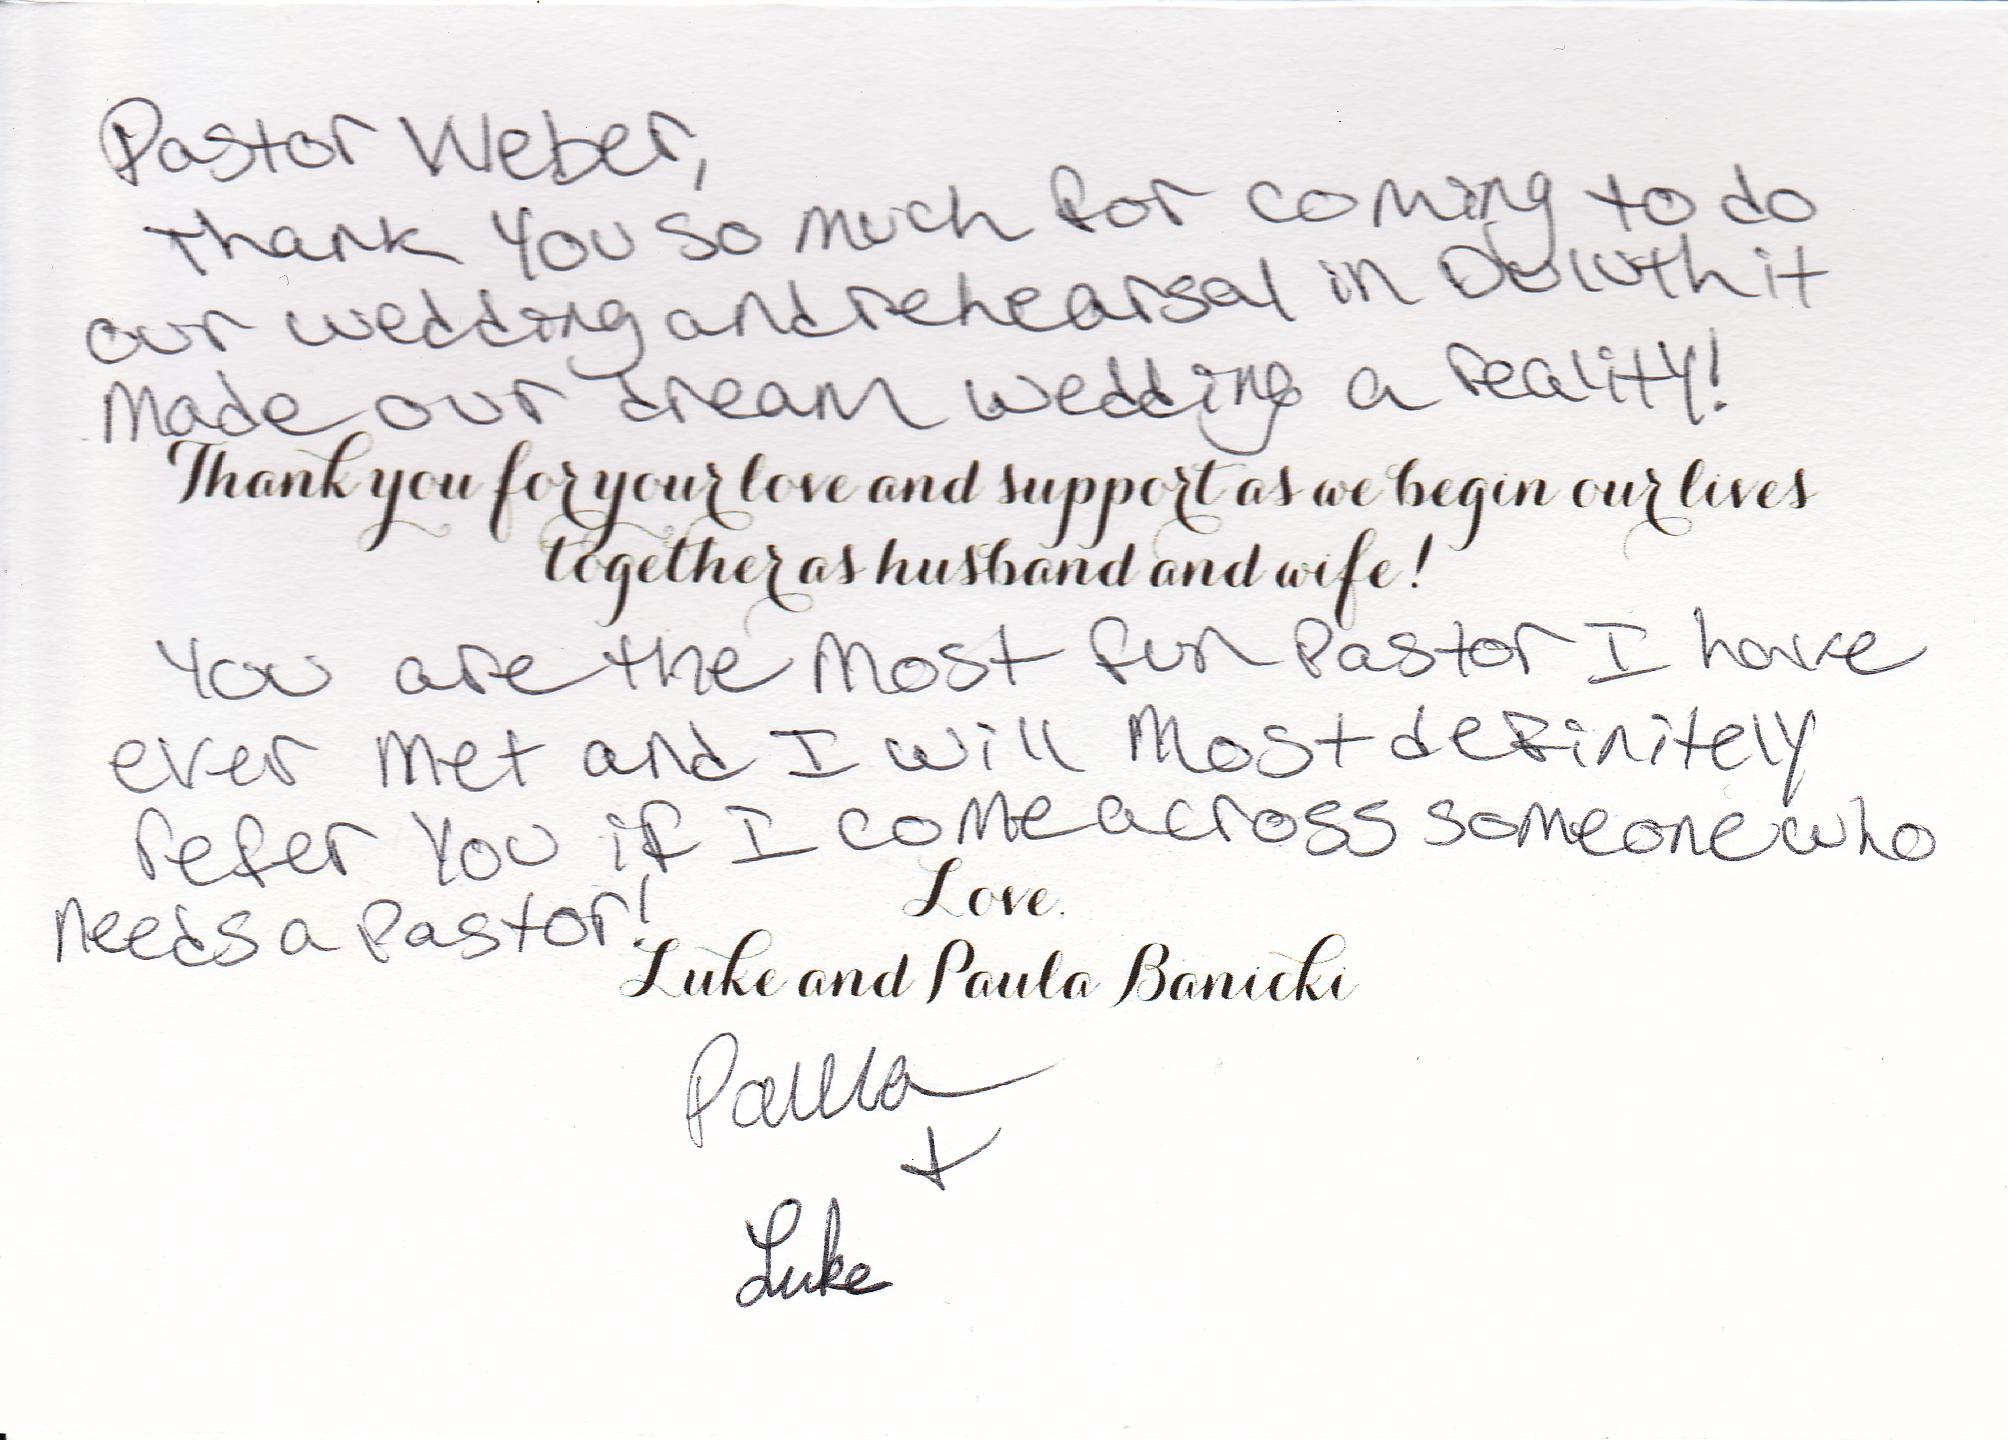 Pastor Weber,
Thank you so much for coming to do
our wedding and rehearsal in Duluth it
made our dream wedding a reality!
Thank you for your love and support as we begin our lives
together as husband and wife!
You are the most fun Pastor I have
ever met and I will most definitely
refer you if I come across someone who
needs a Pastor!
Love,
Luke and Paula Banicki
Paula
+
Luke